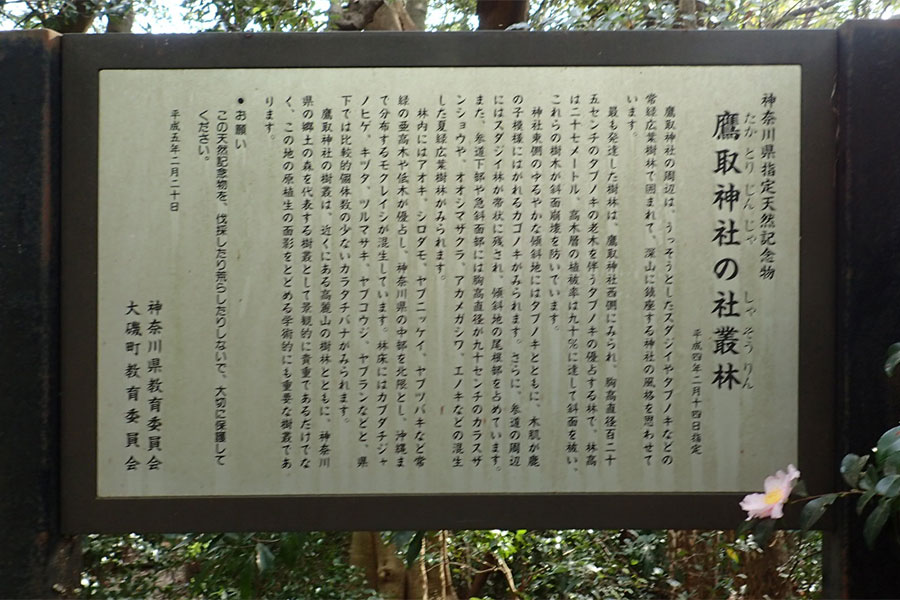 神奈川県指定天然記念物
たか とり じん じゃ しゃ そう りん
鷹取神社の社叢林
平成四年二月十四日指定
鷹取神社の周辺は、うっそうとしたスダジイやタブノキなどの
常緑広葉樹林で囲まれて、深山に鎮座する神社の風格を思わせて
います。
最も発達した樹林は、鷹取神社西側にみられ、胸高直径百二十
五センチのタブノキの老木を伴うタブノキの優占する林で、林高
は二十七メートル、高木層の植被率は九十％に達して斜面を被い、
これらの樹木が斜面崩壊を防いでいます。
神社東側のゆるやかな傾斜地にはタブノキとともに、木肌が鹿
の子模様にはがれるカゴノキがみられます。さらに、参道の周辺
にはスダジイ林が帯状に残され、傾斜地の尾根部を占めています。
また、参道下部や急斜面部には胸高直径が九十センチのカラスザ
ンショウや、オオシマザクラ、アカメガシワ、エノキなどの混生
した夏緑広葉樹林がみられます。
林内にはアオキ、シロダモ、ヤブニッケイ、ヤブツバキなど常
緑の亜高木や低木が優占し、神奈川県の中部を北限とし、沖縄ま
で分布するモクレイシが混生しています。林床にはカブダチジャ
ノヒゲ、キヅタ、ツルマサキ、ヤブコウジ、ヤブランなどと、県
下では比較的個体数の少ないカラタチバナがみられます。
鷹取神社の樹叢は、近くにある高麗山の樹林とともに、神奈川
県の郷土の森を代表する樹叢として景観的に貴重であるだけでな
く、この地の原植生の面影をとどめる学術的にも重要な樹叢であ
ります。
●お願い
この天然記念物を、伐採したり荒らしたりしないで、大切に保護して
ください。
平成五年二月二十日
神奈川県教育委員会
大磯町教育委員会